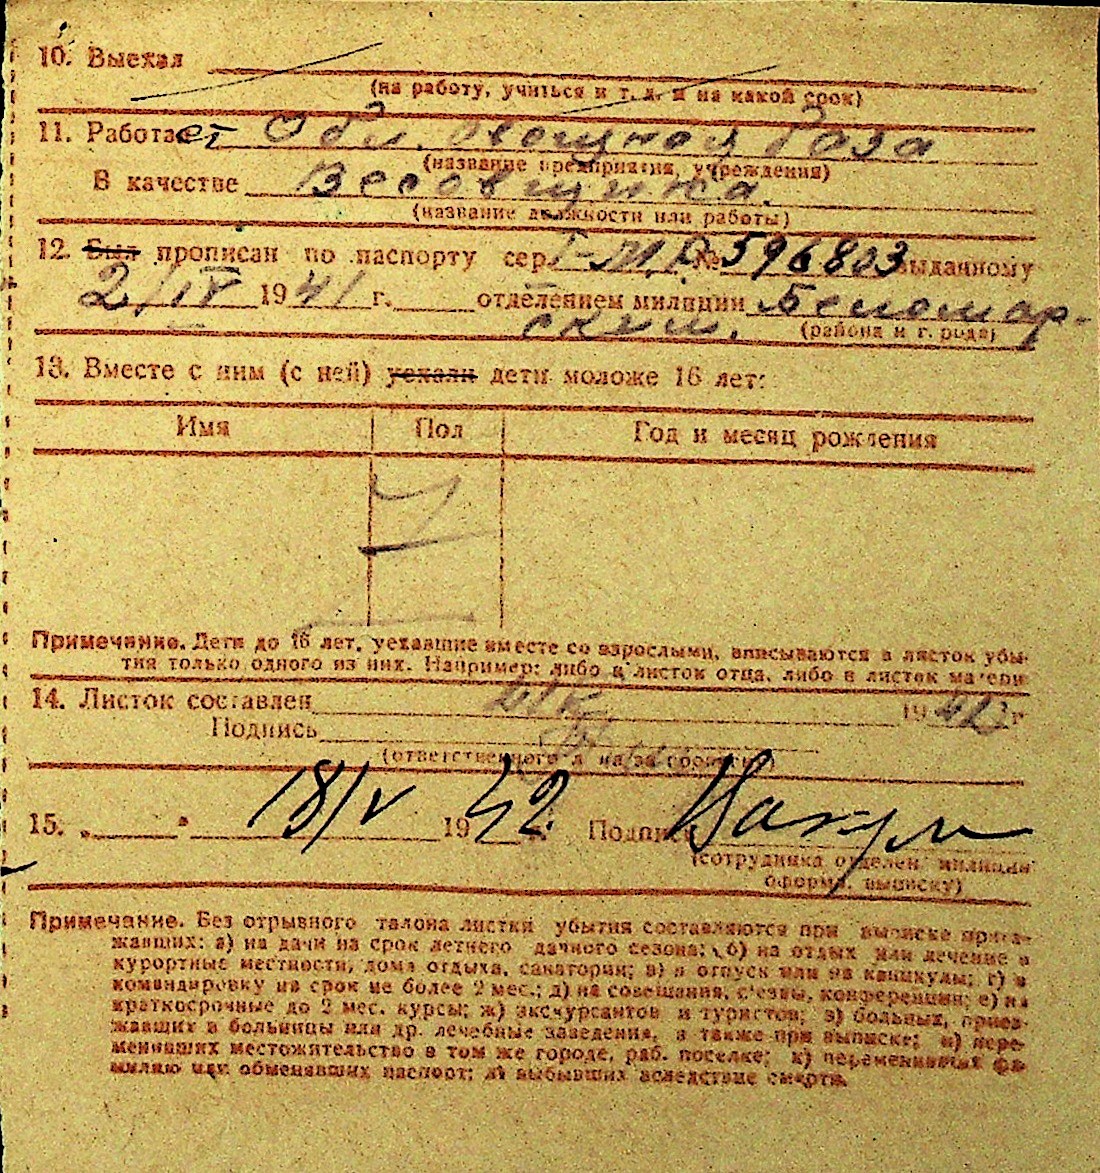 10. Выехал
(на работу, учиться и т. д. и на какой срок)
11. Работает Обл. овощная база
(название предприятия, учреждения)
В качестве Весовщика.
(название должности или работы)
12. Был прописан по паспорту сер. № 596803 выданному
2/IV 1941 г. отделением милиции Беломор-
ским. (района и города)
13. Вместе с ним (с ней) уехали дети моложе 16 лет:
Имя Пол Год и месяц рождения
Примечание. Дети до 16 лет, уехавшие вместе со взрослыми, вписываются в листок убы-
тия только одного из них. Например: либо в листок отца, либо в листок матери
14. Листок составлен 1942 г
Подпись
(ответственного за прописку)
15. „ " 18/V 1942 г. Подпись
(сотрудника отделен. милиции
оформ. выписку)
Примечание. Без отрывного талона листки убытия составляются при выписке приез-
жавших: а) на дачи на срок летнего дачного сезона; б) на отдых или лечение в
курортные местности, дома отдыха, санатории; в) в отпуск или на каникулы; г) в
командировку на срок не более 2 мес.; д) на совещания, съезды, конференции; е) на
краткосрочные до 2 мес. курсы; ж) экскурсантов и туристов; з) больных, приез-
жавших в больницы или др. лечебные заведения, а также при выписке; и) пере-
менивших местожительство в том же городе, раб. поселке; к) переменивших фа-
милию или обменявших паспорт; л) выбывших вследствие смерти.